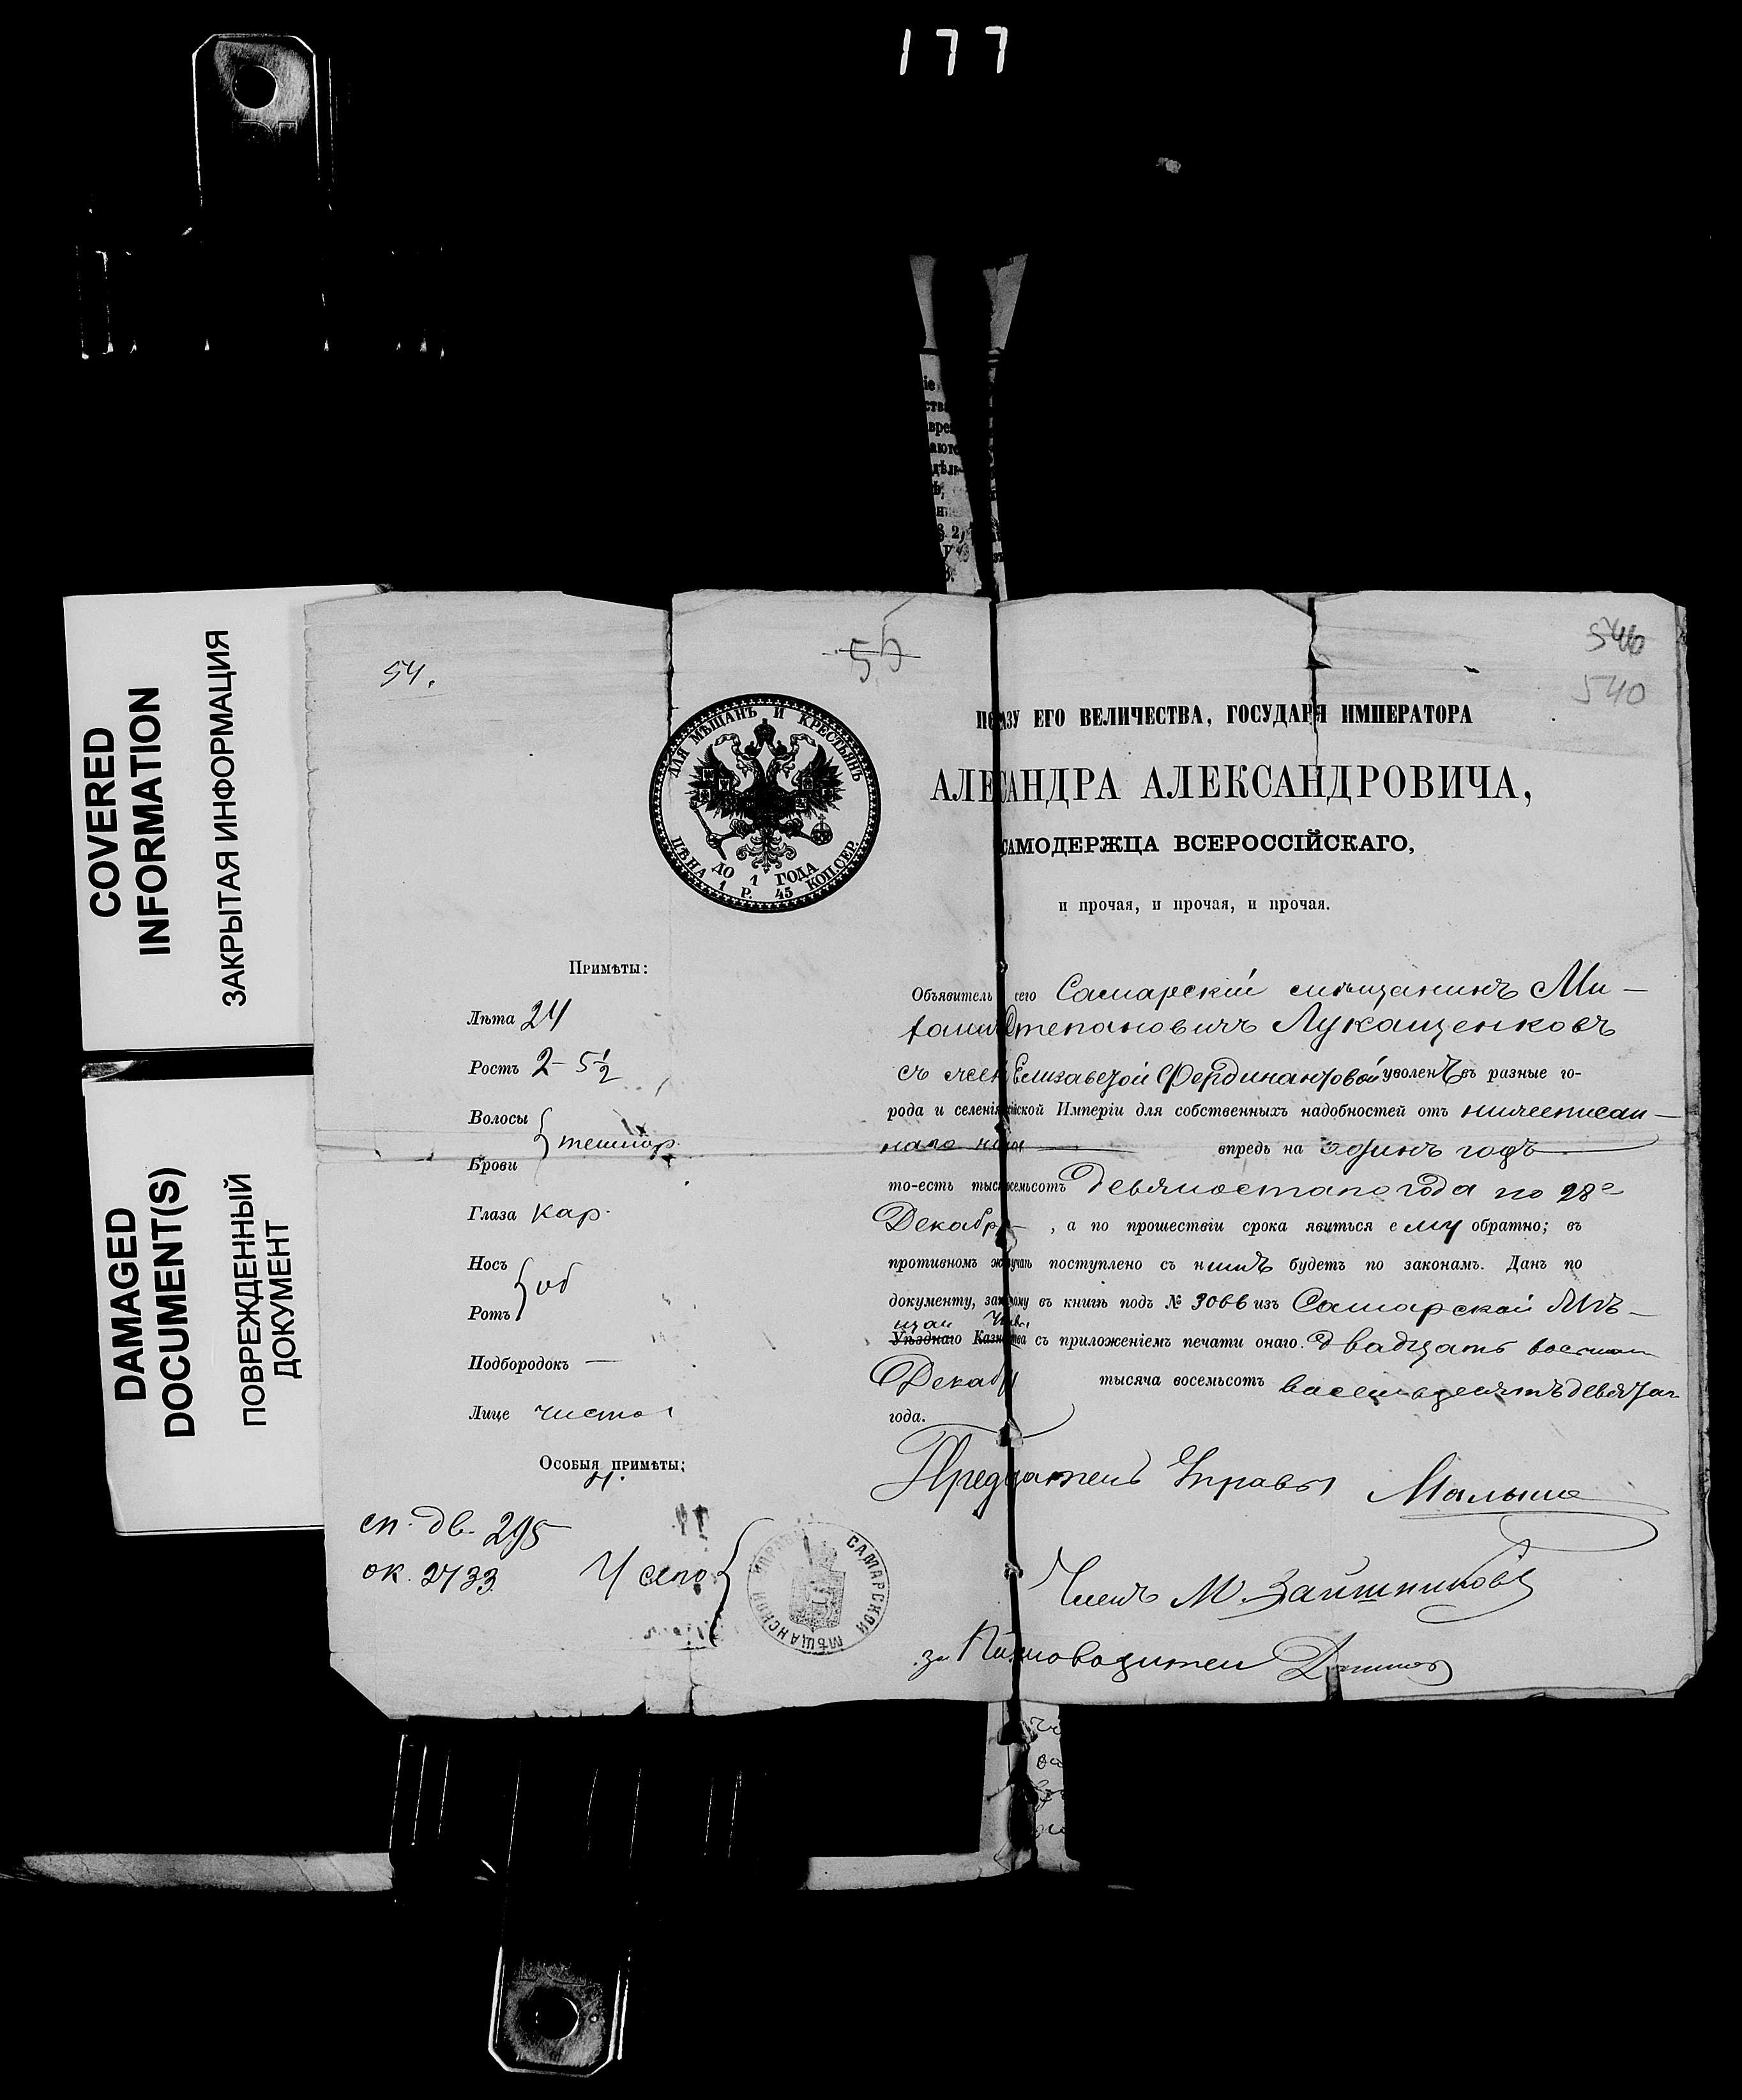 177
COVERED
INFORMATION
ЗАКРЫТАЯ ИНФОРМАЦИЯ
DAMAGED
DOCUMENT(S)
ПОВРЕЖДЕННЫЙ
ДОКУМЕНТ
54.
55
546
540
ДЛЯ МѢЩАНЪ И КРЕСТЬЯНЪ
ДО 1 ГОДА
ЦѢНА 1 Р. 45 КОП. СЕР.
ПО ЗУ ЕГО ВЕЛИЧЕСТВА, ГОСУДАРЯ ИМПЕРАТОРА
АЛЕ САНДРА АЛЕКСАНДРОВИЧА,
САМОДЕРЖЦА ВСЕРОССІЙСКАГО,
и прочая, и прочая, и прочая.
Примѣты:
Лѣта 24
Ростъ 2 - 5 1/2
Волосы
Брови
темнор.
Глаза кар.
Носъ
Ротъ
об
Подбородокъ —
Лице чистое
Особыя примѣты:
н.
сп. дв. 295
ок. 2733
САМАРСКОЙ МѢЩАНСКОЙ УПРАВЫ
Объявитель сего Самарскій мѣщанинъ Ми-
Степановичъ Лукащенковъ
съ жен Елизаветой Фердинантовой уволенъ въ разные го-
рода и селенія йской Имперіи для собственныхъ надобностей отъ нижеписан-
наго впредь на одинъ годъ
то-есть тыс восемьсотъ девяностаго года по 28е
Декабр , а по прошествіи срока явиться ему обратно; въ
противномъ ж случаѣ поступлено съ нимъ будетъ по законамъ. Данъ по
документу, за ному въ книгѣ подъ № 3066 изъ Самарской Мѣ-
щан
Уѣзднаго Казн тва съ приложеніемъ печати онаго. двадцать восьмого
Декабр тысяча восемьсотъ восемьдесятъ девятаг
года.
Предсѣдатель Управы
Членъ М.
за Письмоводителя